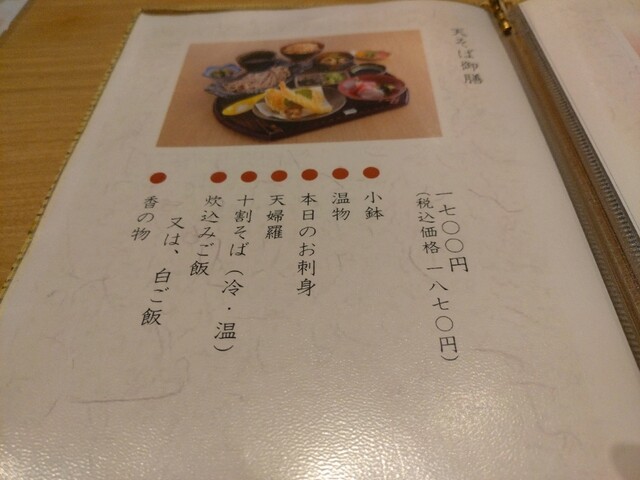 天そば御膳
一七〇〇円
（税込価格 一八七〇円）
小鉢
温物
本日のお刺身
天婦羅
十割そば（冷・温）
炊込みご飯
又は、白ご飯
香の物